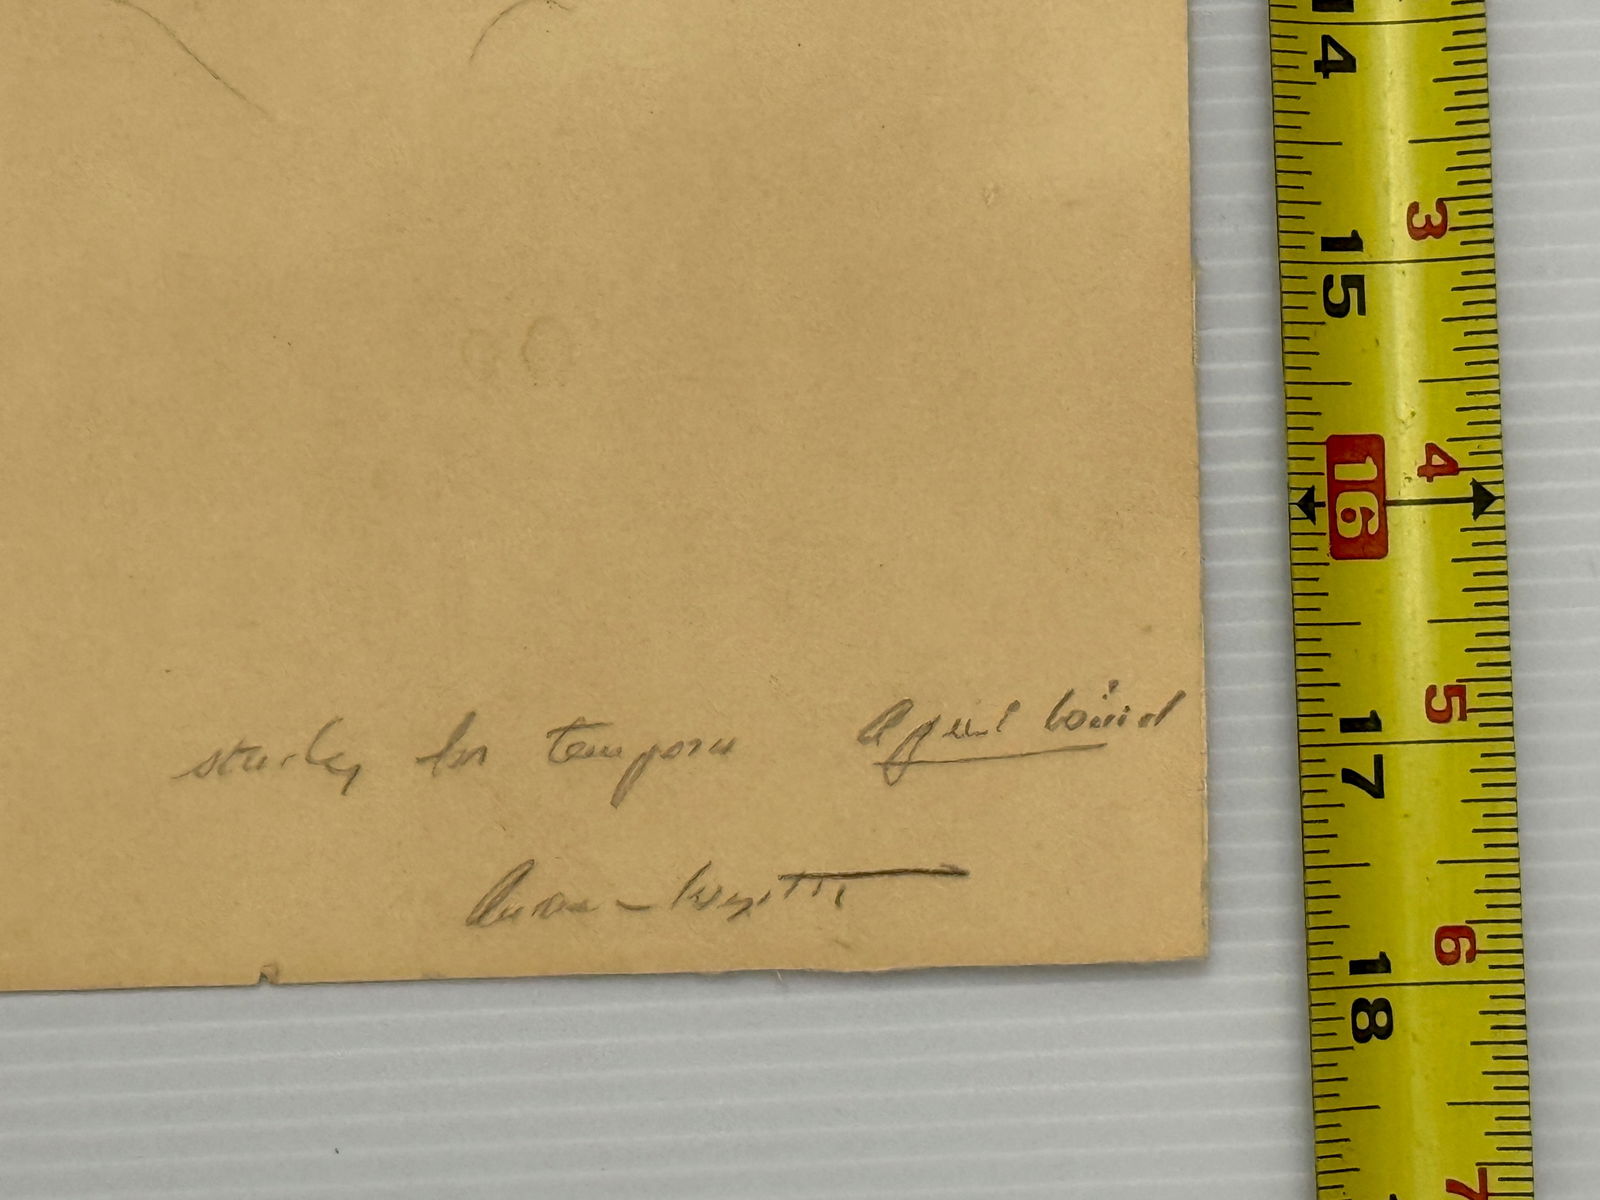 study for tempera April Wind
Andrew Wyeth
14
3
15
4
16
5
17
6
18
7